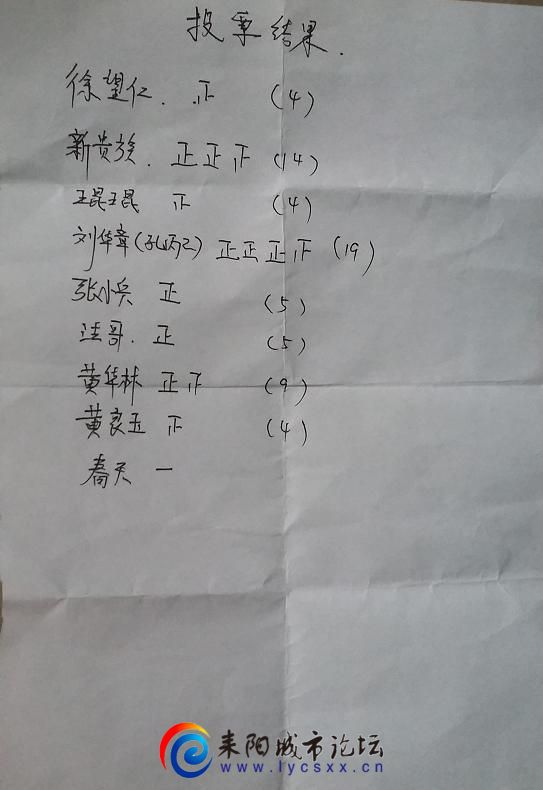 投票结果.
徐望仁. 正 (4)
新贵族. 正正正 (14)
王昆王昆 正 (4)
刘华章(孔丙己) 正正正正 (19)
张小兵 正 (5)
哥. 正 (5)
黄华林 正正 (9)
黄良玉 正 (4)
春天 一
耒阳城市论坛
www.lycsxx.cn